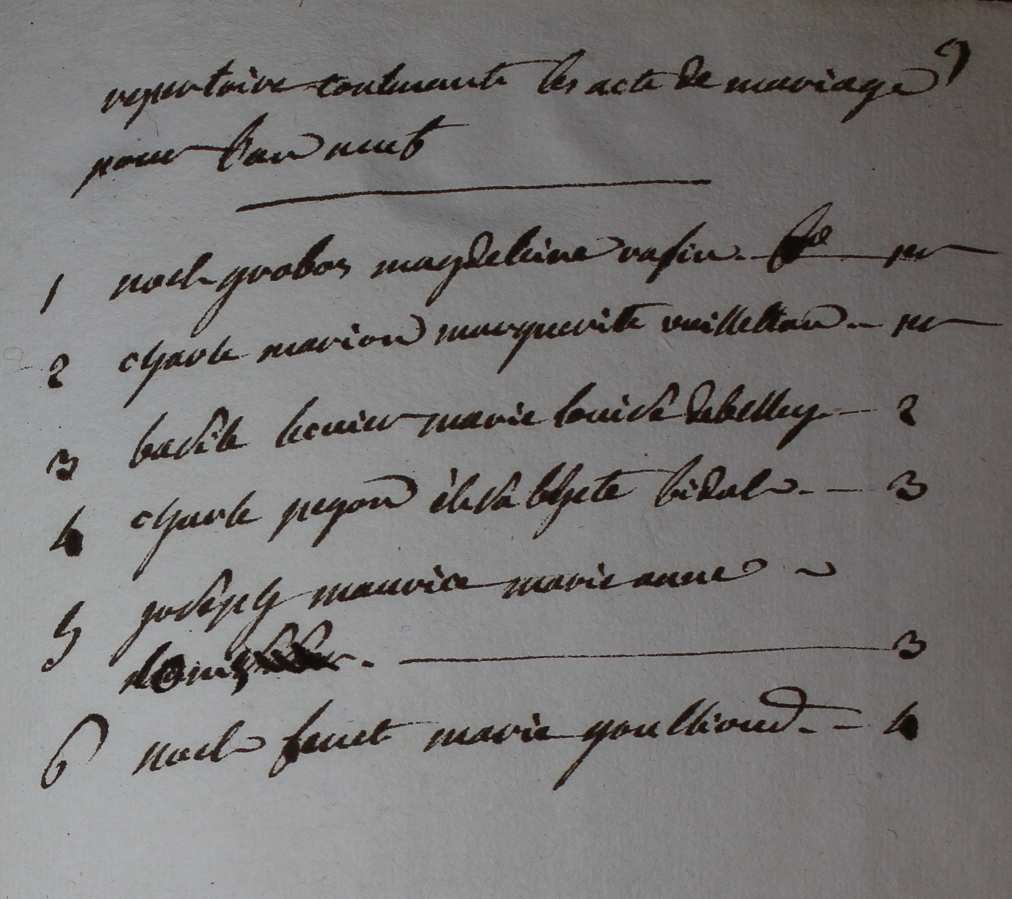 9
repertoire contenante les acte de mariage
pour l'an neuf
1 noel grobos magdeleine rasin. — pr
2 charle marion marguerite vuilletton. - pr
3 basile lienier marie louise debelley - 2
4 charle pegon élisabhete bidal. - 3
5 joseph maurice marie anne
3
6 noel fenet marie goultioud. - 4